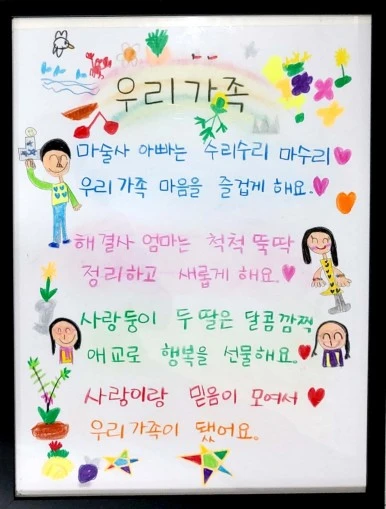 우리가족
마술사 아빠는 수리수리 마수리
우리가족 마음을 즐겁게 해요.
해결사 엄마는 척척 뚝딱
정리하고 새롭게 해요.
사랑둥이 두 딸은 달콤 깜찍
애교로 행복을 선물해요.
사랑이랑 믿음이 모여서
우리가족이 됐어요.